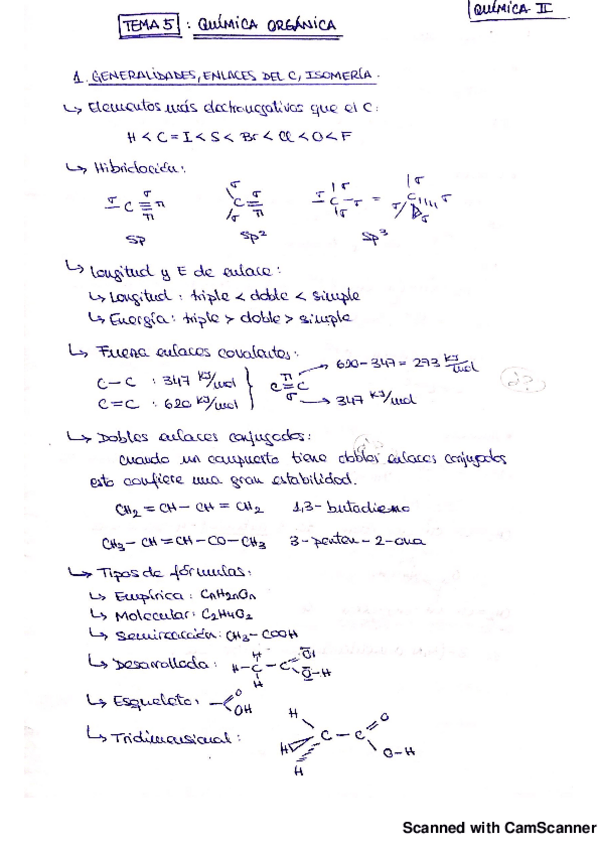 QUÍMICA II
TEMA 5 : QUÍMICA ORGÁNICA
1. GENERALIDADES, ENLACES DEL C, ISOMERÍA.
↳ Elementos más electronegativos que el C:
H < C = I < S < Br < Cl < O < F
↳ Hibridación:
sp sp² sp³
↳ Longitud y E de enlace:
↳ Longitud : triple < doble < simple
↳ Energía : triple > doble > simple
↳ Fuerza enlaces covalentes:
C-C : 347 kJ/mol
C=C : 620 kJ/mol
π → 620-347 = 273 kJ/mol
σ → 347 kJ/mol
↳ Dobles enlaces conjugados:
cuando un compuesto tiene dobles enlaces conjugados
esto confiere una gran estabilidad.
CH₂ = CH - CH = CH₂ 1,3-butadieno
CH₃ - CH = CH - CO - CH₃ 3-penten-2-ona
↳ Tipos de fórmulas:
↳ Empírica : CnH2nOn
↳ Molecular : C₂H₄O₂
↳ Semidesarrollada : CH₃ - COOH
↳ Desarrollada :
↳ Esqueleto :
↳ Tridimensional :
Scanned with CamScanner